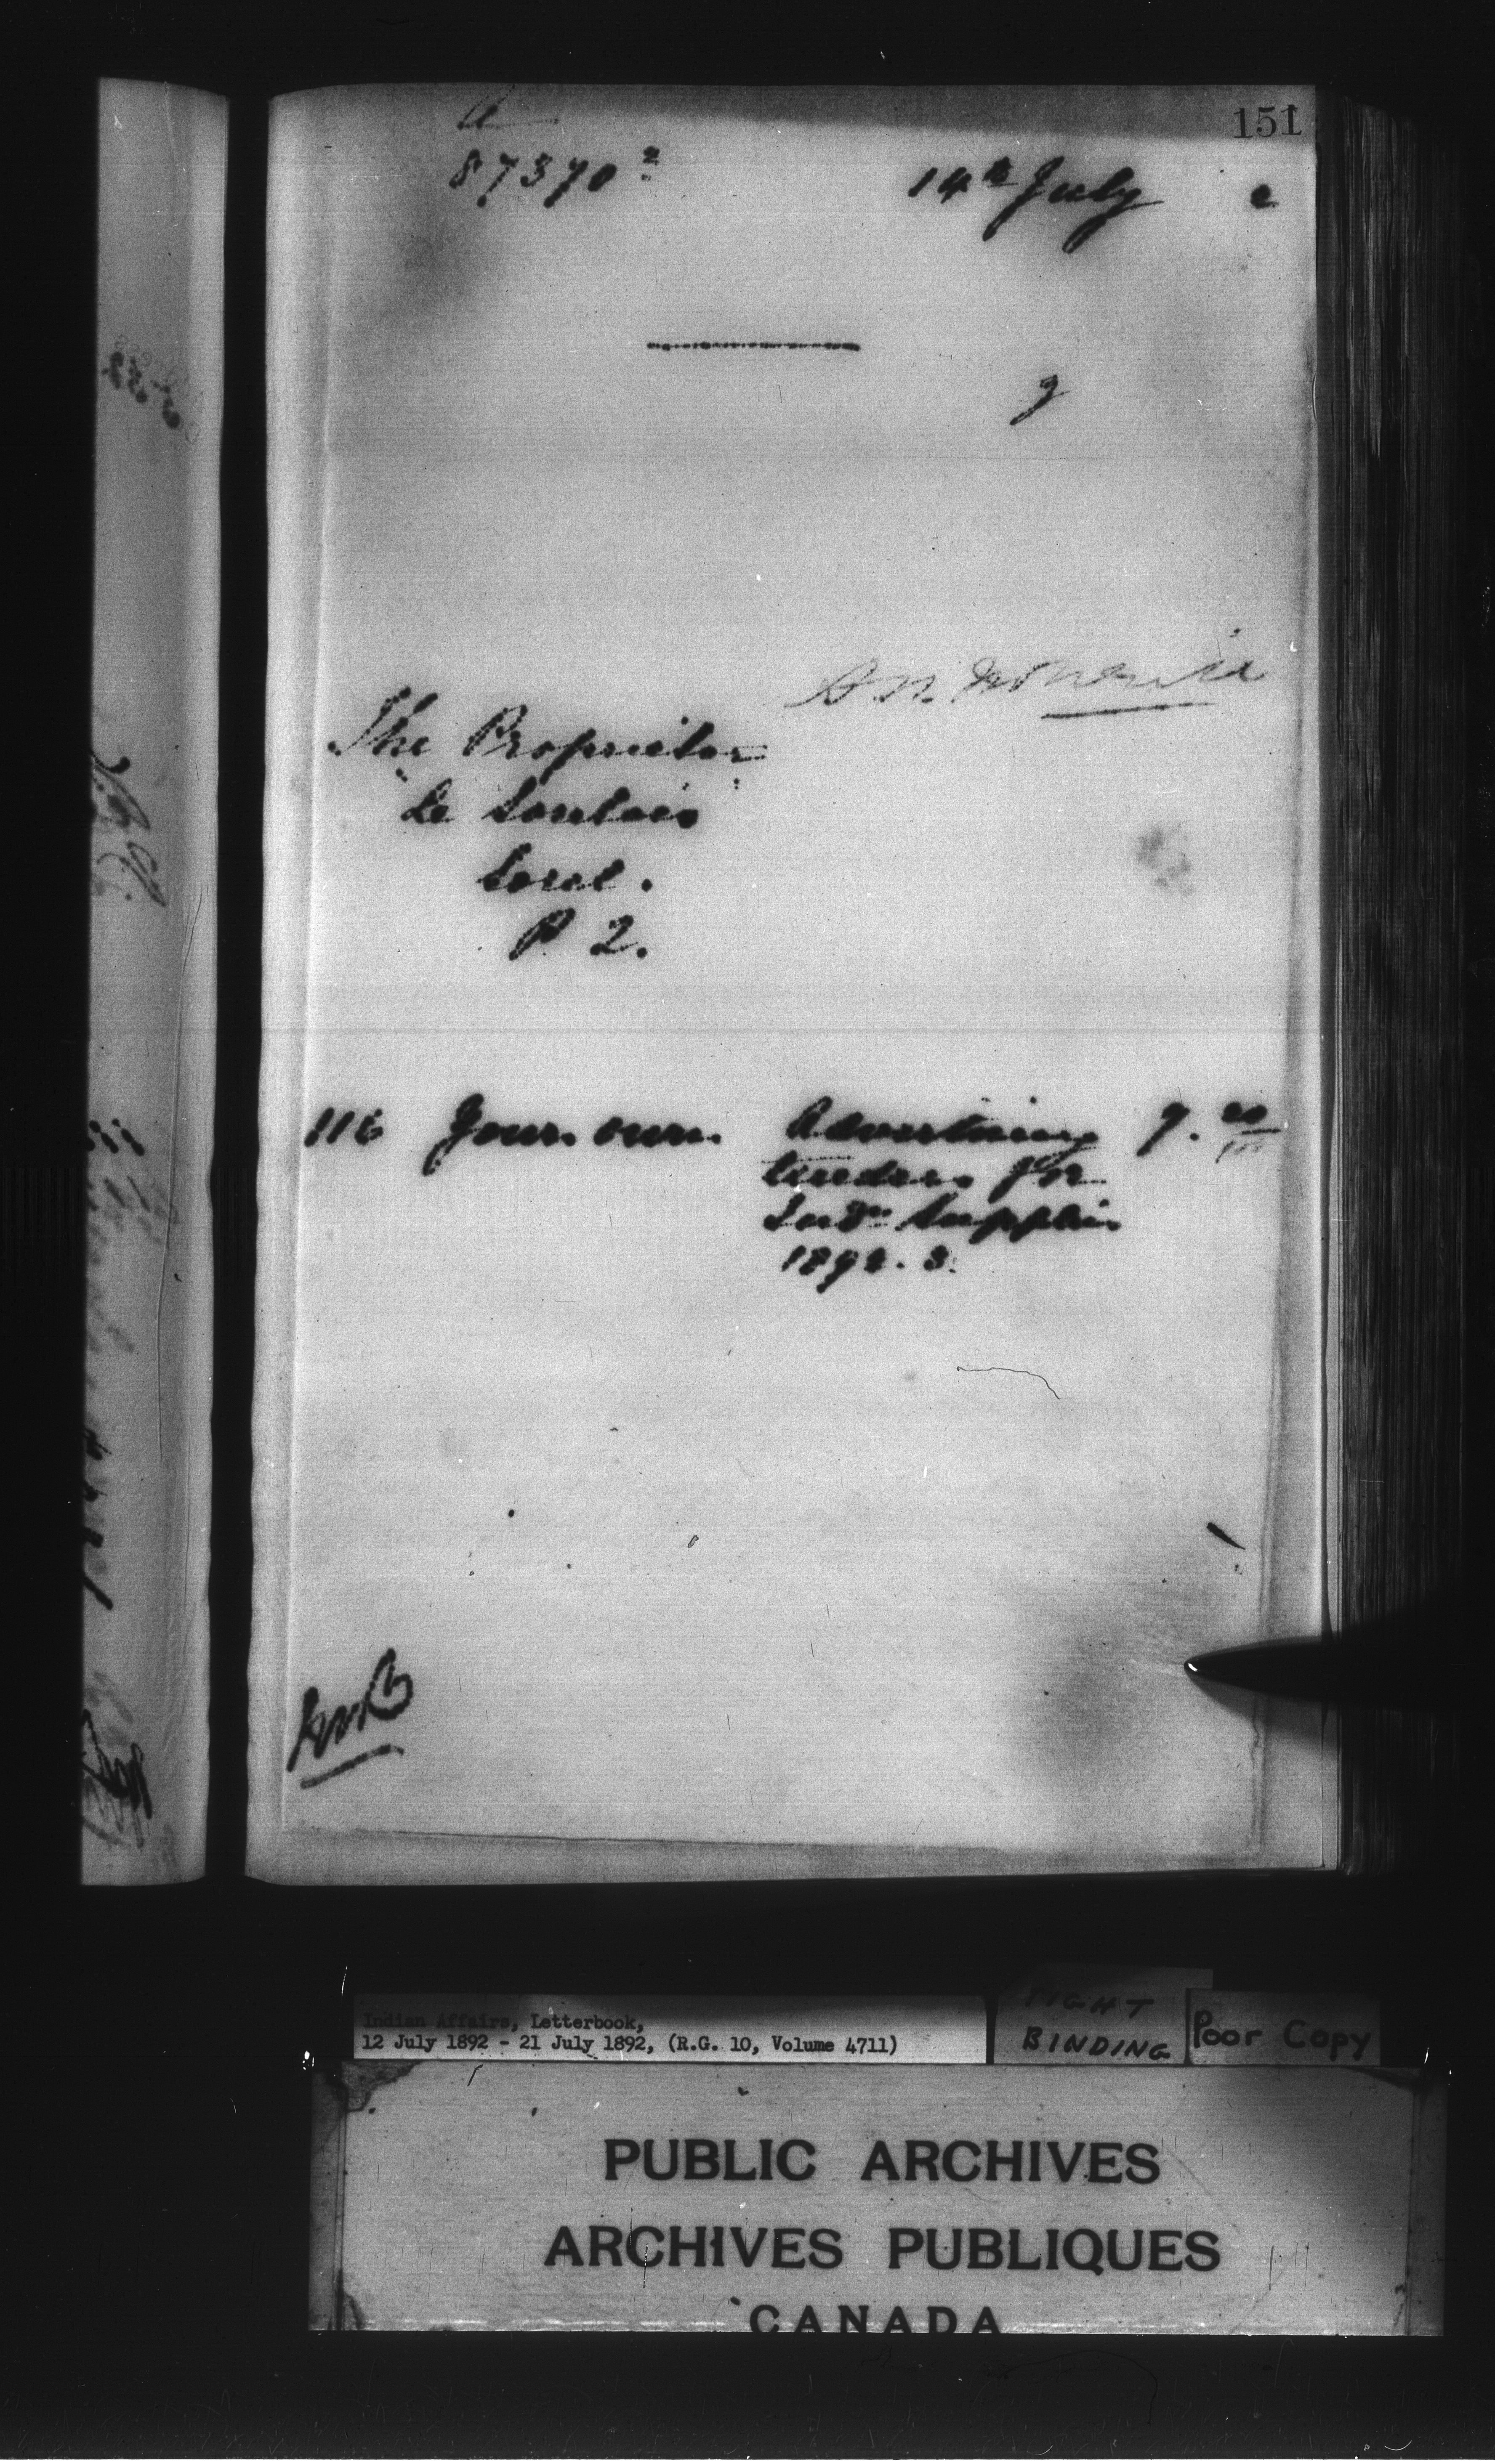 151
A
87370²
14th July 2
g
The Proprietor
"Le Sorelois"
Sorel.
P 2.
116 Your own. Advertising 7. 20/100
tenders for
Indn Supplies
1892. 3.
Indian Affairs, Letterbook,
12 July 1892 - 21 July 1892, (R.G. 10, Volume 4711)
TIGHT
BINDING
Poor Copy
PUBLIC ARCHIVES
ARCHIVES PUBLIQUES
CANADA